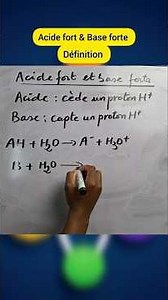 Acide fort & Base forte
Définition
Acide fort et base forte
Acide : cède un proton H⁺
Base : capte un proton H⁺
AH + H₂O → A⁻ + H₃O⁺
B + H₂O →